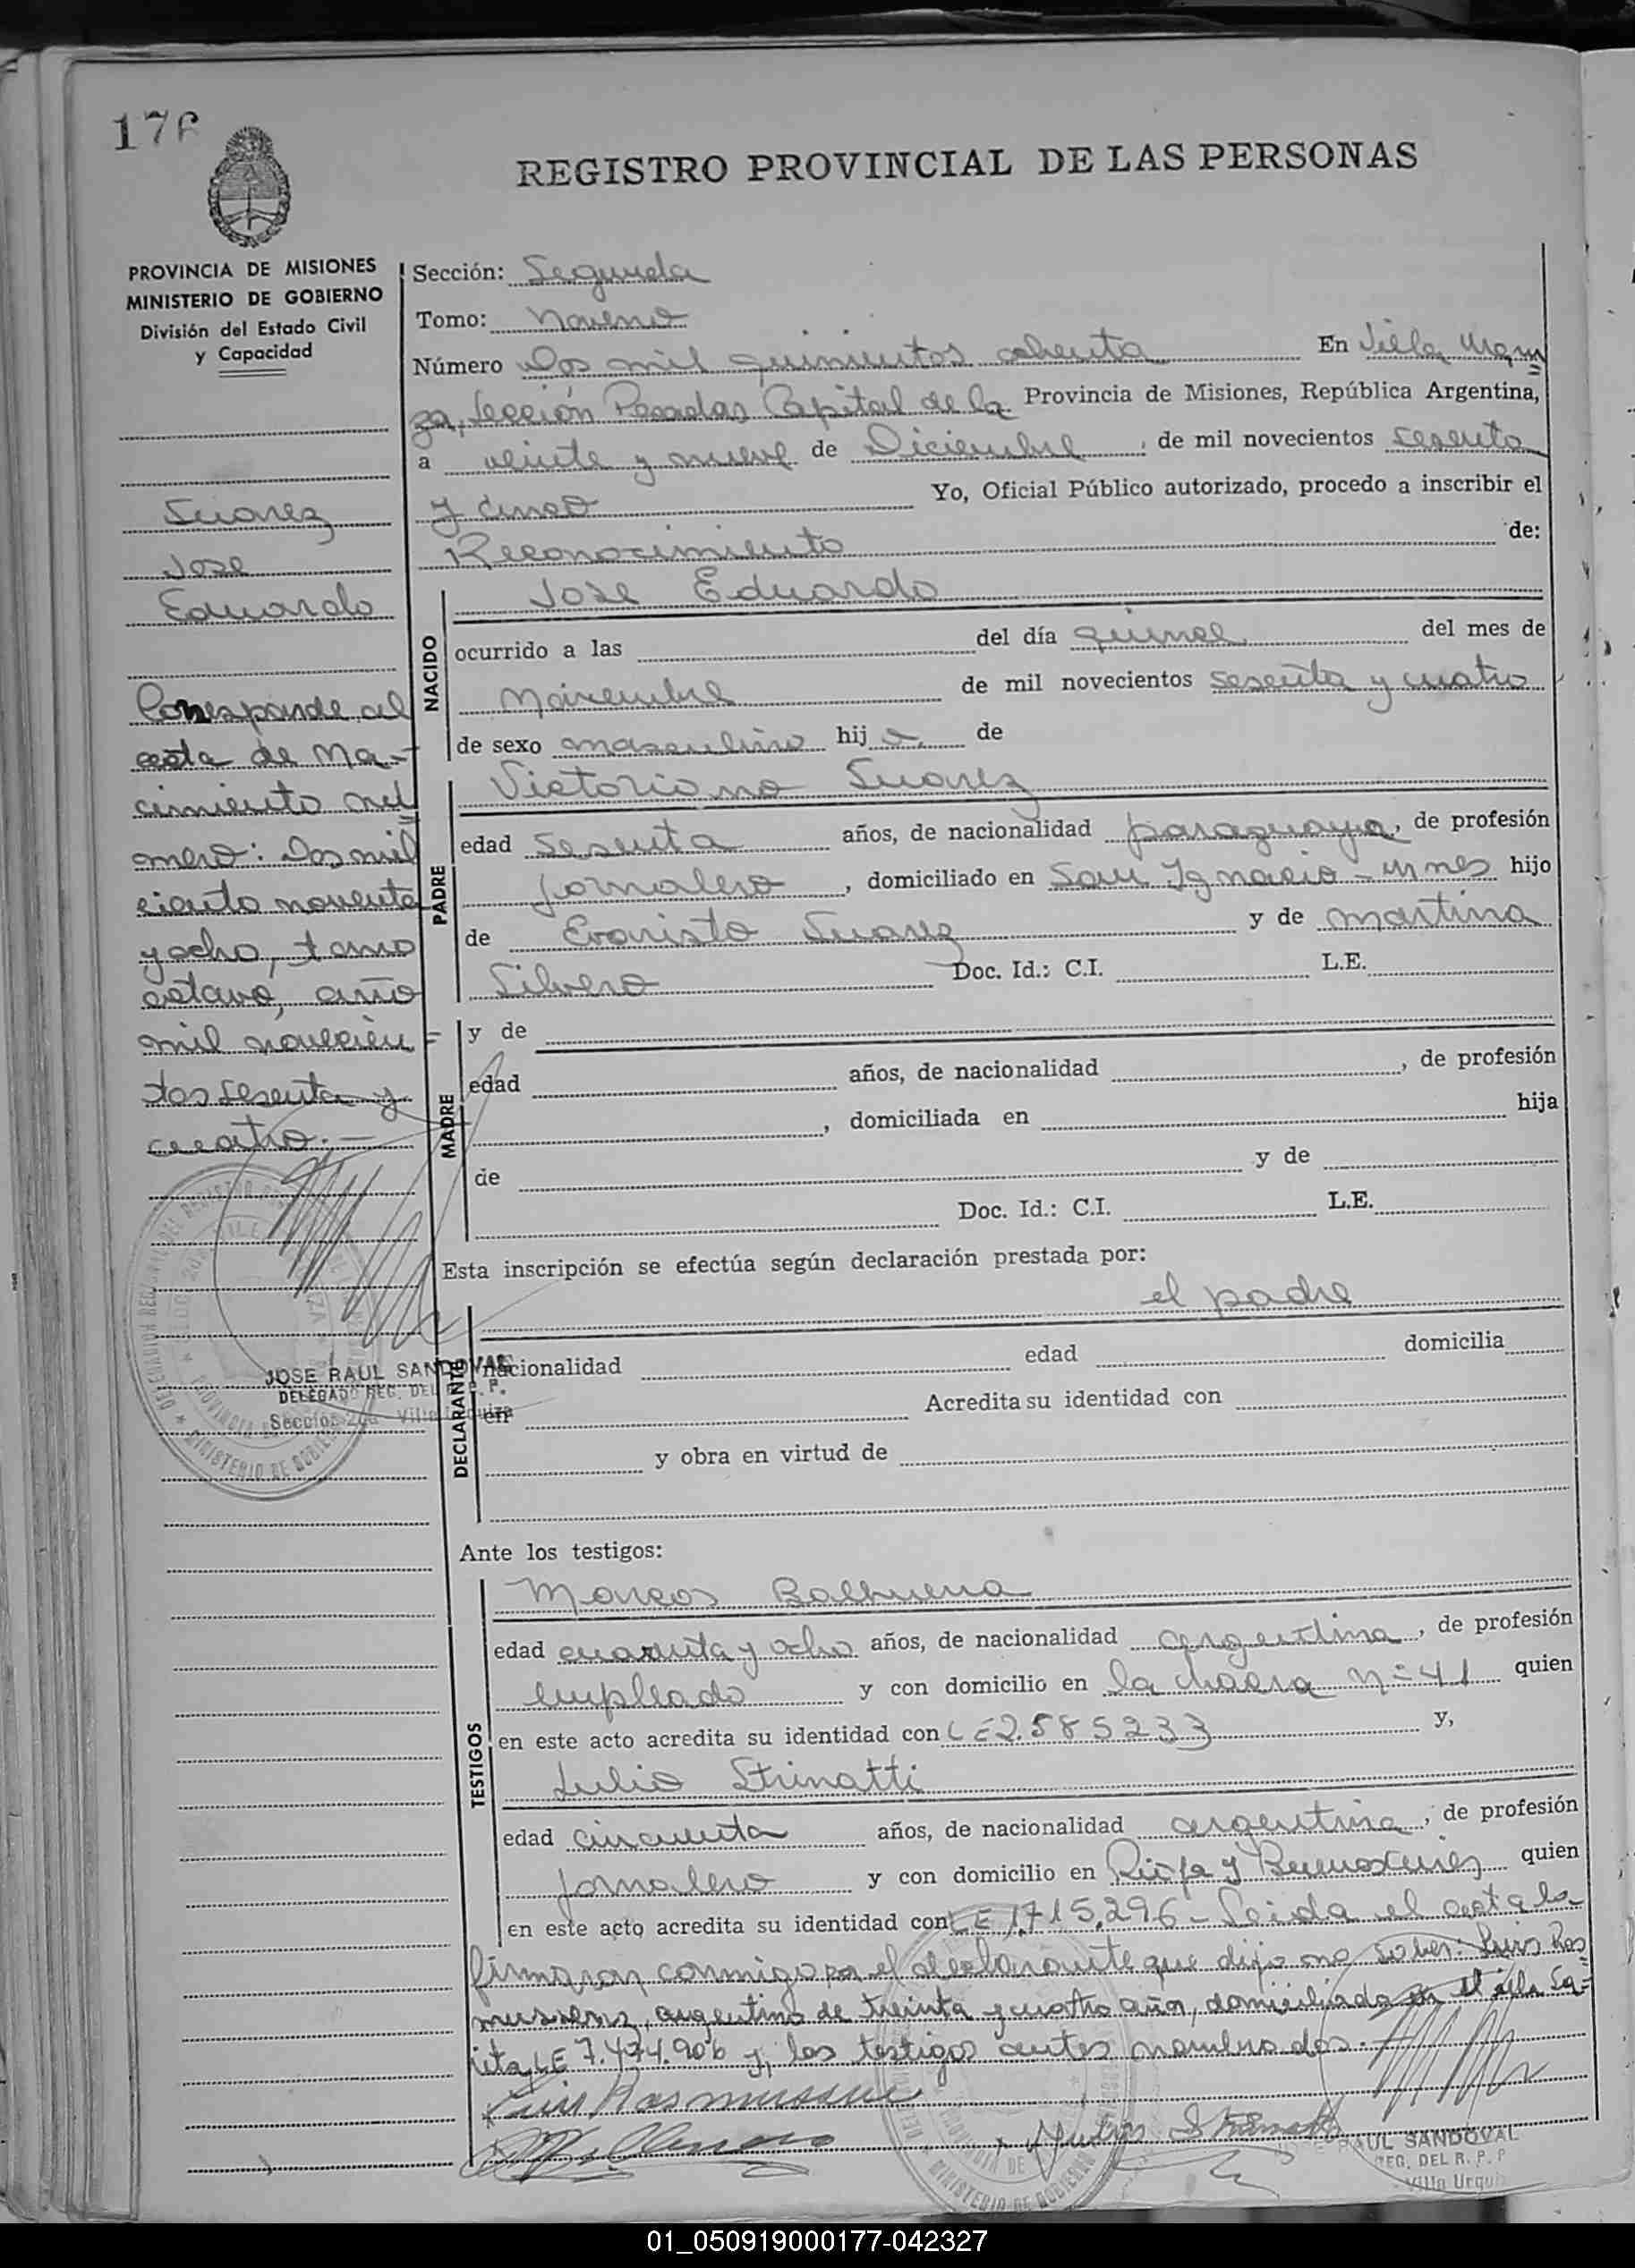 176
REGISTRO PROVINCIAL DE LAS PERSONAS
PROVINCIA DE MISIONES
MINISTERIO DE GOBIERNO
División del Estado Civil
y Capacidad
Suarez
Jose
Eduardo
Corresponde al
acta de Na-
cimiento nú
mero: Dos mil
ciento noventa
y ocho, tomo
octavo, año
mil novecien
tos sesenta y
cuatro.-
JOSE RAUL SANDOVAL
DELEGADO REG. DEL R. P. P.
Sección 2da Villa Urquiza
Sección: Segunda
Tomo: Noveno
Número Dos mil quinientos ochenta En Villa Urqui
za, Sección Posadas Capital de la Provincia de Misiones, República Argentina,
a veinte y nueve de Diciembre, de mil novecientos sesenta
y cinco Yo, Oficial Público autorizado, procedo a inscribir el
Reconocimiento de:
NACIDO
Jose Eduardo
ocurrido a las del día quince del mes de
Noviembre de mil novecientos sesenta y cuatro
de sexo masculino hijo de
PADRE
Victoriano Suarez
edad sesenta años, de nacionalidad paraguaya, de profesión
jornalero, domiciliado en San Ignacio - Mnes hijo
de Evaristo Suarez y de Martina
Silvero Doc. Id.: C.I. L.E.
MADRE
y de
edad años, de nacionalidad , de profesión
, domiciliada en hija
de y de
Doc. Id.: C.I. L.E.
Esta inscripción se efectúa según declaración prestada por:
DECLARANTE
el padre
nacionalidad edad domicilia
en Acredita su identidad con
y obra en virtud de
Ante los testigos:
TESTIGOS
Marcos Balbuena
edad cuarenta y ocho años, de nacionalidad argentina, de profesión
empleado y con domicilio en la chacra Nº 41 quien
en este acto acredita su identidad con LE 2.585233 y,
Julio Strinatti
edad cincuenta años, de nacionalidad argentina, de profesión
jornalero y con domicilio en Rioja y Buenos Aires quien
en este acto acredita su identidad con LE 1.715.296 - Leida el acta la
firmaron conmigo por el declarante que dijo no saber: Luis Ras
mussens, argentino de treinta y cuatro años, domiciliado en
LE 7.474.906 y, los testigos antes nombrados.
Luis Rasmussen
Julio Strinatti
RAUL SANDOVAL
REG. DEL R. P. P
Villa Urqui
01_050919000177-042327